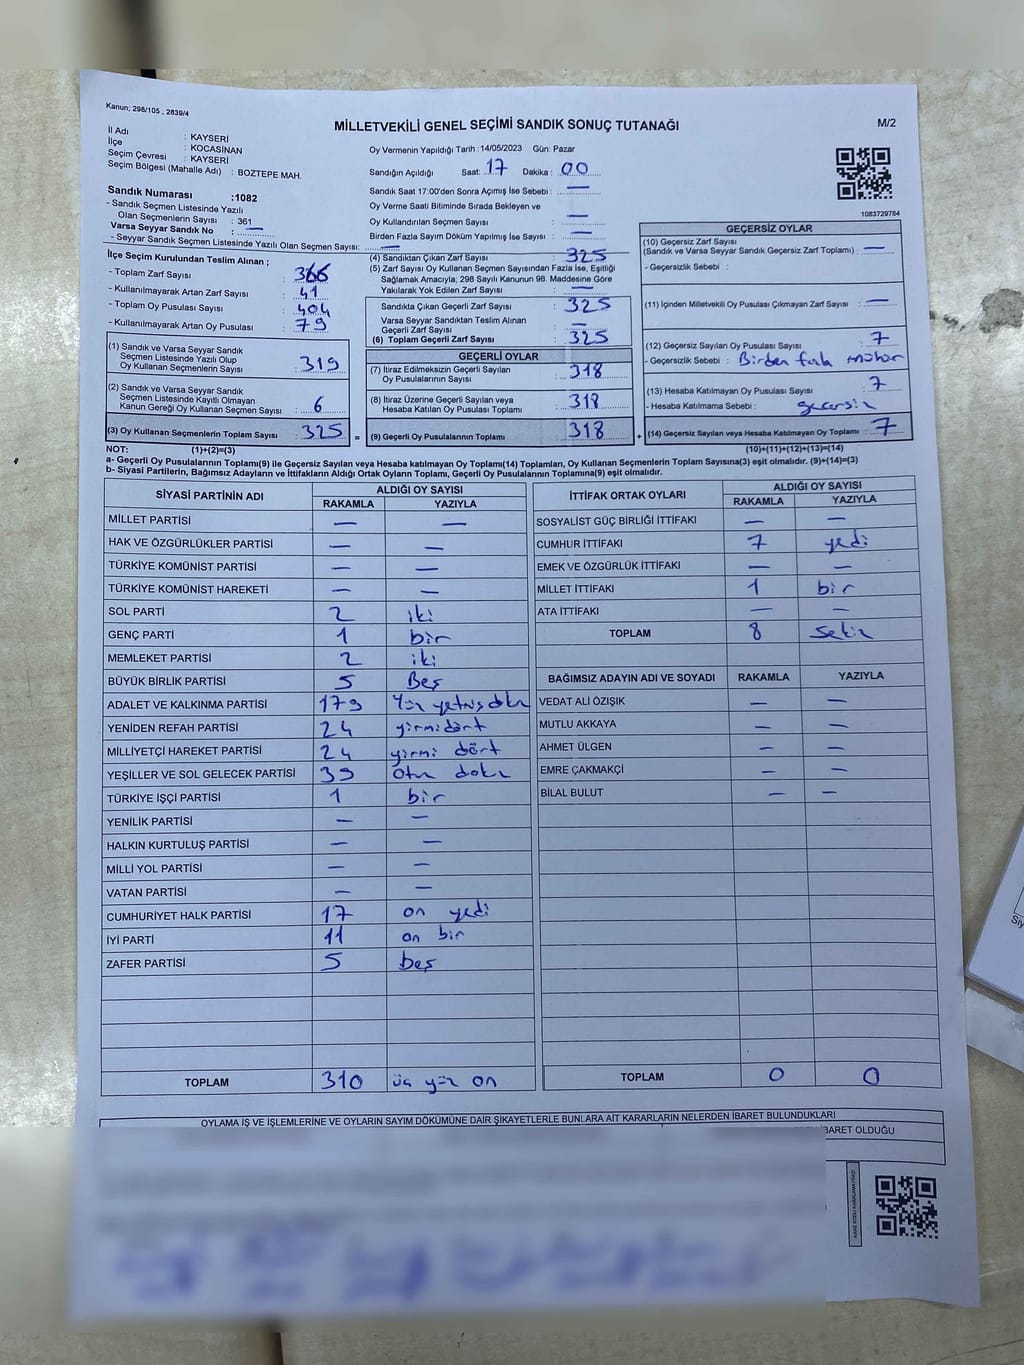 Kanun; 298/105 , 2839/4
MİLLETVEKİLİ GENEL SEÇİMİ SANDIK SONUÇ TUTANAĞI
M/2
İl Adı : KAYSERİ
İlçe : KOCASİNAN
Seçim Çevresi : KAYSERİ
Seçim Bölgesi (Mahalle Adı) : BOZTEPE MAH.
Sandık Numarası :1082
- Sandık Seçmen Listesinde Yazılı
Olan Seçmenlerin Sayısı : 361
Varsa Seyyar Sandık No : —
- Seyyar Sandık Seçmen Listesinde Yazılı Olan Seçmen Sayısı: —
Oy Vermenin Yapıldığı Tarih :14/05/2023 Gün: Pazar
Sandığın Açıldığı Saat: 17 Dakika : 00
Sandık Saat 17:00'den Sonra Açımış İse Sebebi : —
Oy Verme Saati Bitiminde Sırada Bekleyen ve
Oy Kullandırılan Seçmen Sayısı : —
Birden Fazla Sayım Döküm Yapılmış İse Sayısı : —
1083729784
İlçe Seçim Kurulundan Teslim Alınan ;
- Toplam Zarf Sayısı : 366
- Kullanılmayarak Artan Zarf Sayısı : 41
- Toplam Oy Pusulası Sayısı : 404
- Kullanılmayarak Artan Oy Pusulası : 79
(1) Sandık ve Varsa Seyyar Sandık
Seçmen Listesinde Yazılı Olup
Oy Kullanan Seçmenlerin Sayısı : 319
(2) Sandık ve Varsa Seyyar Sandık
Seçmen Listesinde Kayıtlı Olmayan
Kanun Gereği Oy Kullanan Seçmen Sayısı : 6
(3) Oy Kullanan Seçmenlerin Toplam Sayısı : 325 =
(4) Sandıktan Çıkan Zarf Sayısı : 325
(5) Zarf Sayısı Oy Kullanan Seçmen Sayısından Fazla İse, Eşitliği
Sağlamak Amacıyla; 298 Sayılı Kanunun 98. Maddesine Göre
Yakılarak Yok Edilen Zarf Sayısı : —
Sandıkta Çıkan Geçerli Zarf Sayısı : 325
Varsa Seyyar Sandıktan Teslim Alınan
Geçerli Zarf Sayısı : —
(6) Toplam Geçerli Zarf Sayısı : 325
GEÇERLİ OYLAR
(7) İtiraz Edilmeksizin Geçerli Sayılan
Oy Pusulalarının Sayısı : 318
(8) İtiraz Üzerine Geçerli Sayılan veya
Hesaba Katılan Oy Pusulası Toplamı : 318
(9) Geçerli Oy Pusulalarının Toplamı : 318 +
GEÇERSİZ OYLAR
(10) Geçersiz Zarf Sayısı
(Sandık ve Varsa Seyyar Sandık Geçersiz Zarf Toplamı) : —
- Geçersizlik Sebebi :
(11) İçinden Milletvekili Oy Pusulası Çıkmayan Zarf Sayısı : —
(12) Geçersiz Sayılan Oy Pusulası Sayısı : 7
- Geçersizlik Sebebi : Birden fazla mühür
(13) Hesaba Katılmayan Oy Pusulası Sayısı : 7
- Hesaba Katılmama Sebebi : geçersiz
(14) Geçersiz Sayılan veya Hesaba Katılmayan Oy Toplamı : 7
NOT: (1)+(2)=(3) (10)+(11)+(12)+(13)=(14)
a- Geçerli Oy Pusulalarının Toplamı(9) ile Geçersiz Sayılan veya Hesaba katılmayan Oy Toplamı(14) Toplamları, Oy Kullanan Seçmenlerin Toplam Sayısına(3) eşit olmalıdır. (9)+(14)=(3)
b- Siyasi Partilerin, Bağımsız Adayların ve İttifakların Aldığı Ortak Oyların Toplamı, Geçerli Oy Pusulalarının Toplamına(9) eşit olmalıdır.
SİYASİ PARTİNİN ADI ALDIĞI OY SAYISI
RAKAMLA YAZIYLA
MİLLET PARTİSİ — —
HAK VE ÖZGÜRLÜKLER PARTİSİ — —
TÜRKİYE KOMÜNİST PARTİSİ — —
TÜRKİYE KOMÜNİST HAREKETİ — —
SOL PARTİ 2 iki
GENÇ PARTİ 1 bir
MEMLEKET PARTİSİ 2 iki
BÜYÜK BİRLİK PARTİSİ 5 Beş
ADALET VE KALKINMA PARTİSİ 179 Yüz yetmiş dokuz
YENİDEN REFAH PARTİSİ 24 yirmi dört
MİLLİYETÇİ HAREKET PARTİSİ 24 yirmi dört
YEŞİLLER VE SOL GELECEK PARTİSİ 39 Otuz dokuz
TÜRKİYE İŞÇİ PARTİSİ 1 bir
YENİLİK PARTİSİ — —
HALKIN KURTULUŞ PARTİSİ — —
MİLLİ YOL PARTİSİ — —
VATAN PARTİSİ — —
CUMHURİYET HALK PARTİSİ 17 on yedi
İYİ PARTİ 11 on bir
ZAFER PARTİSİ 5 beş
TOPLAM 310 üç yüz on
İTTİFAK ORTAK OYLARI ALDIĞI OY SAYISI
RAKAMLA YAZIYLA
SOSYALİST GÜÇ BİRLİĞİ İTTİFAKI — —
CUMHUR İTTİFAKI 7 yedi
EMEK VE ÖZGÜRLÜK İTTİFAKI — —
MİLLET İTTİFAKI 1 bir
ATA İTTİFAKI — —
TOPLAM 8 sekiz
BAĞIMSIZ ADAYIN ADI VE SOYADI RAKAMLA YAZIYLA
VEDAT ALİ ÖZIŞIK — —
MUTLU AKKAYA — —
AHMET ÜLGEN — —
EMRE ÇAKMAKÇİ — —
BİLAL BULUT — —
TOPLAM 0 0
OYLAMA İŞ VE İŞLEMLERİNE VE OYLARIN SAYIM DÖKÜMÜNE DAİR ŞİKAYETLERLE BUNLARA AİT KARARLARIN NELERDEN İBARET BULUNDUKLARI
İBARET OLDUĞU